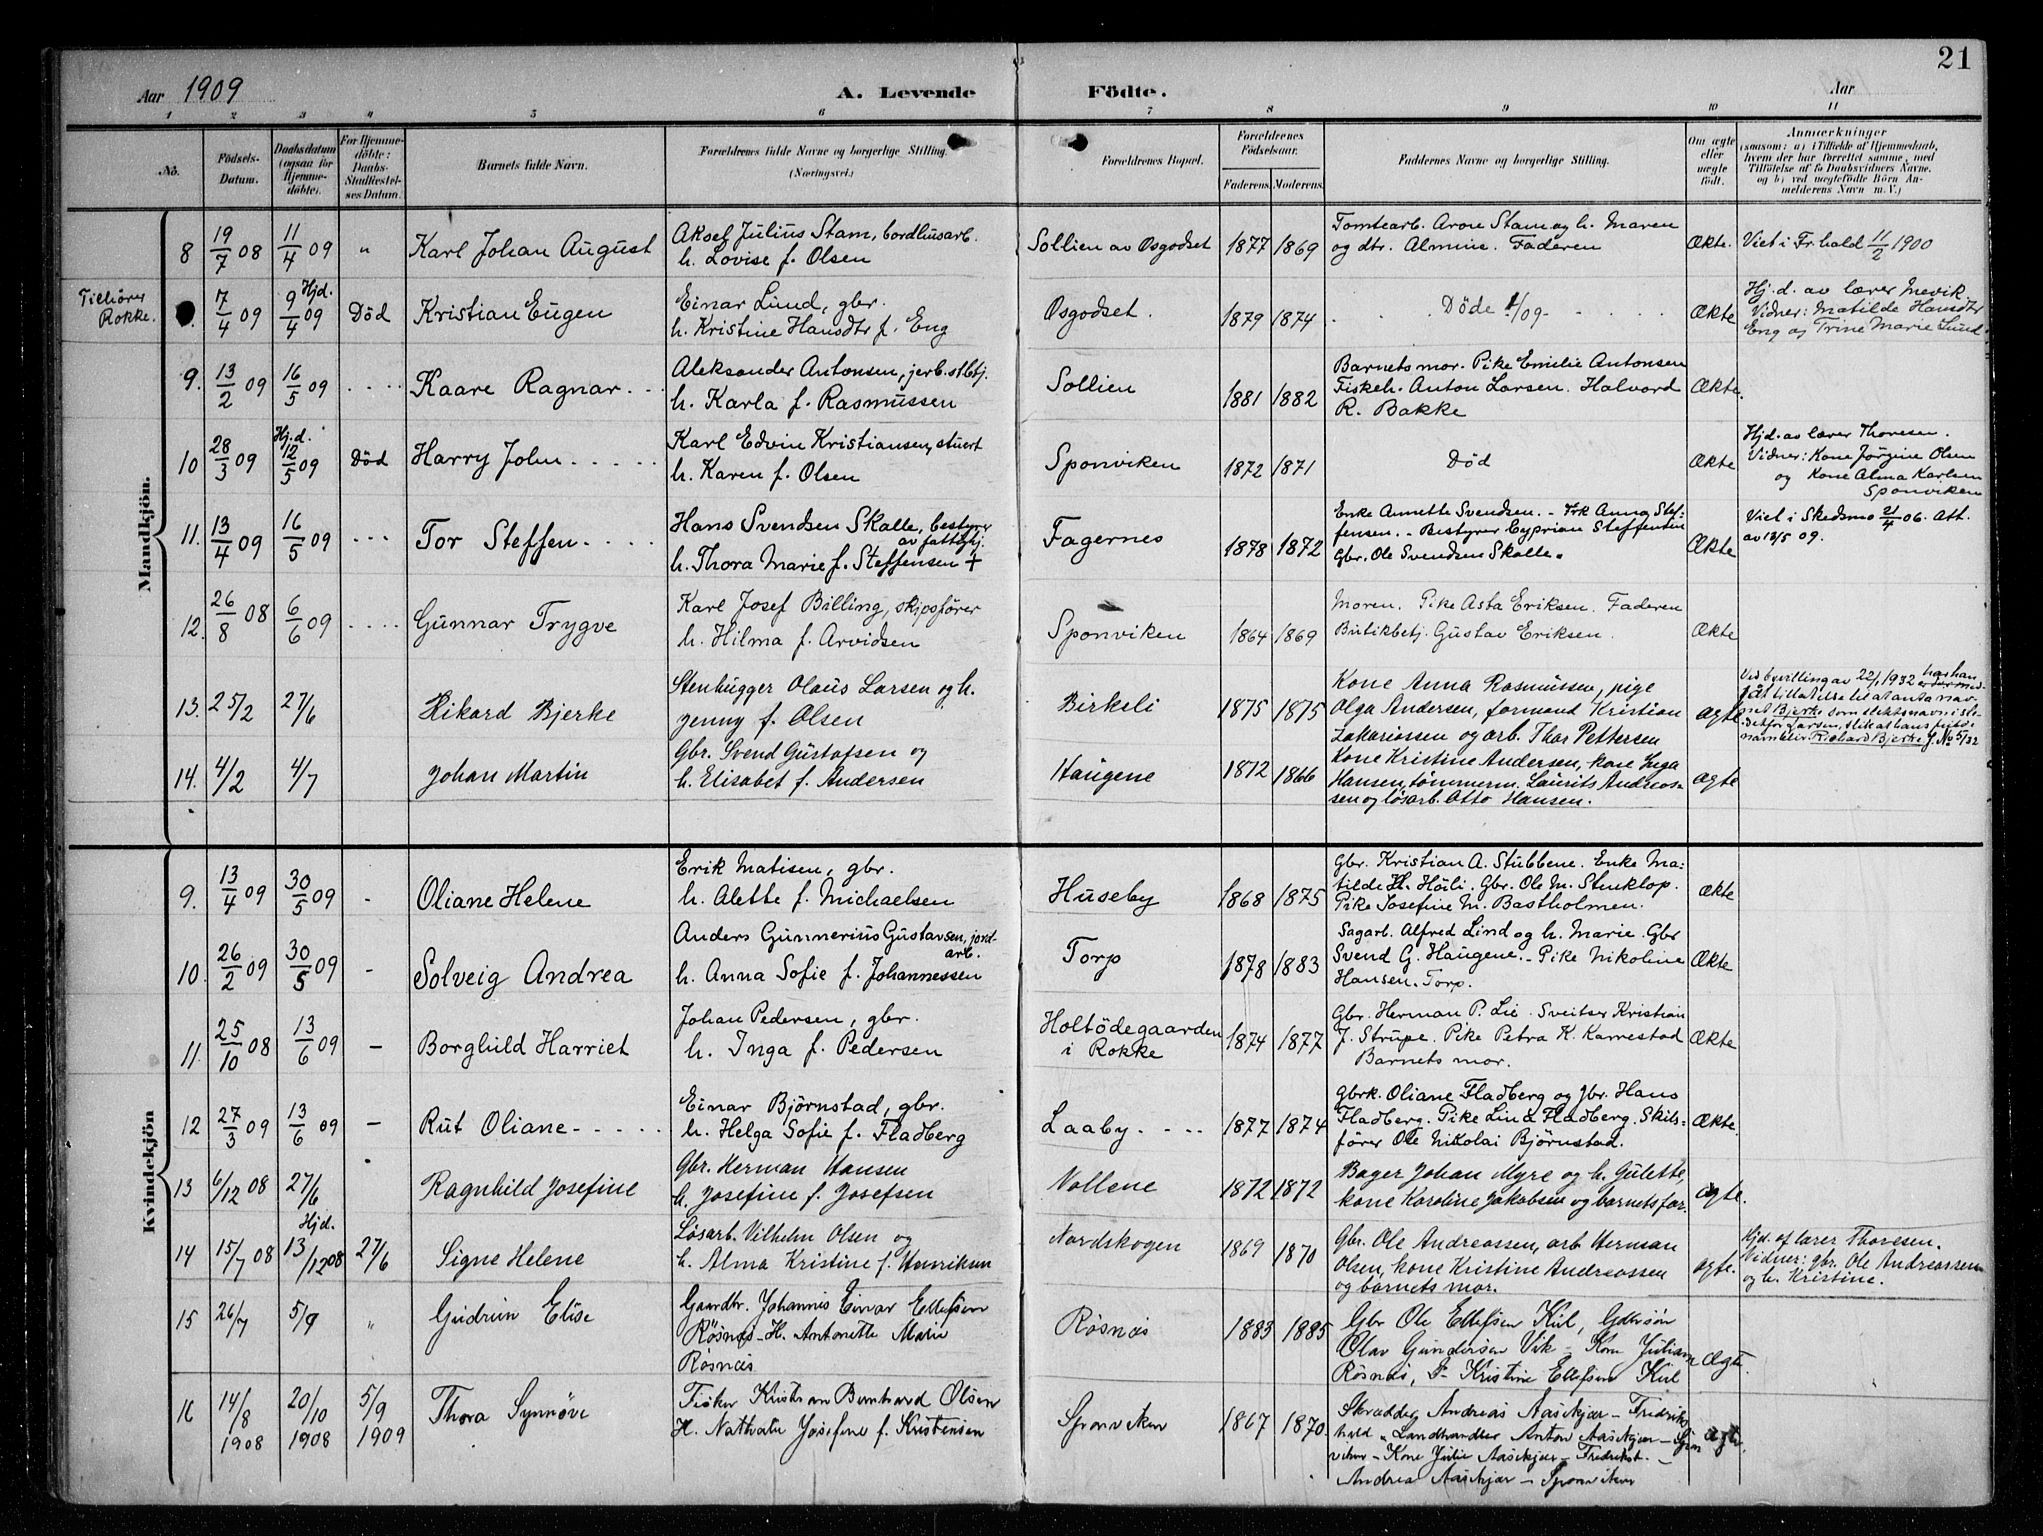 21
Aar 1909 A. Levende Födte. Aar
1 2 3 4 5 6 7 8 9 10 11
No. Födsels-Datum. Daabsdatum (ogsaa for Hjemme-döbte). For Hjemme-döbte: Daabs-Stadfæstel-ses Datum. Barnets fulde Navn. Forældrenes fulde Navne og borgerlige Stilling. (Næringsvei.) Forældrenes Bopæl. Forældrenes Födselsaar. Faderens. Moderens. Faddernes Navne og borgerlige Stilling. Om ægte eller uægte födt. Anmærkninger (saasom: a) i Tilfælde af Hjemmedaab, hvem der har forrettet samme, med Tilföielse af to Daabsvidners Navne, og b) ved uægtefödte Börn An-melderens Navn m. V.)
Mandkjön.
8 19/7 08 11/4 09 " Karl Johan August
Aksel Julius Stam, bordhusarb.
h. Lovise f. Olsen
Sollien av Osgodset 1877 1869
Tomtearb. Arone Stam og h. Maren
og dtr. Almine. Faderen
Ækte. Viet i Fr.hald 11/2 1900
Tilhörer
Rokke.
7/4 09 Hjd. 9/4 09 Död Kristian Eugen
Einar Lund, gbr.
h. Kristine Hansdtr f. Eng
Osgodset. 1879 1874
Döde /09
Ækte
Hj.d. av lærer Mevik
Vidner: Matilde Hansdtr
Eng og Trine Marie Lund
9. 13/2 09 16/5 09 Kaare Ragnar
Aleksander Antonsen, jerb.stbtj.
h. Karla f. Rasmussen
Sollien 1881 1882
Barnets mor. Pike Emilie Antonsen
Fiskeh. Anton Larsen. Halvord
R. Bakke
Ækte.
10 28/3 09 Hj.d. 12/5 09 Död Harry John
Karl Edvin Kristiansen, stuert
h. Karen f. Olsen
Sponviken 1872 1871
Död
Ækte
Hjd. av lærer Thoresen.
Vidner: Kone Jörgine Olsen
og Kone Alma Karlsen
Sponviken
11. 13/4 09 16/5 09 Tor Steffen
Hans Svendsen Skalle, bestyrer
av fattighj.
h. Thora Marie f. Steffensen +
Fagernes 1878 1872
Enke Annette Svendsen. - Frk Anna Stef-
fensen. - Bestyrer Cyprian Steffensen
Gbr. Ole Svendsen Skalle.
Ækte
Viet i Skedsmo 21/4 06. Att.
av 13/5 09.
12. 26/8 08 6/6 09 Gunnar Trygve
Karl Josef Billing, skipsförer
h. Hilma f. Arvidsen
Sponviken 1864 1869
Moren. Pike Asta Eriksen. Faderen
Butikbetj. Gustav Eriksen.
Ækte
13. 25/2 27/6 Rikard Bjerke
Stenhugger Olaus Larsen og h.
Jenny f. Olsen
Birkeli 1875 1875
Kone Anna Rasmussen, pige
Olga Andersen, formand Kristian
Zakariassen og arb. Thor Pettersen
Ægte
Ved bevilling av 22/1 1932 har han
fåt tillatelse til at anta nav-
net Bjerke som slektsnavn i ste-
det for Larsen, slik at hans fulde
navn blir Richard Bjerke J.No 5/32
14. 4/2 4/7 Johan Martin
Gbr. Svend Gustafsen og
h. Elisabet f. Andersen
Haugene 1872 1866
Kone Kristine Andersen, kone Inga
Hansen, tömmerm. Laurits Andreas-
sen og lösarb. Otto Hansen.
ægte
Kvindekjön
9. 13/4 09 30/5 09 - Oliane Helene
Erik Matisen, gbr.
h. Alette f. Michaelsen
Huseby 1868 1875
Gbr. Kristian A. Stubbene. Enke Ma-
tilde H. Höili. Gbr. Ole M. Stenktop.
Pike Josefine M. Bastholmen.
Ækte
10. 26/2 09 30/5 09 - Solveig Andrea
Anders Gunnerius Gustavsen, jord-
arb.
h. Anna Sofie f. Johannessen
Torp 1878 1883
Sagarb. Alfred Lind og h. Marie. Gbr
Svend G. Haugene. - Pike Nikoline
Hansen. Torp.
Ækte
11. 25/10 08 13/6 09 - Borghild Harriet
Johan Pedersen, gbr.
h. Inga f. Pedersen
Holtödegaarden
i Rokke
1874 1877
Gbr. Herman P. Lie. Sveitser Kristian
J. Strupe. Pike Petra K. Karrestad
Barnets mor.
Ækte
12 27/3 09 13/6 09 - Rut Oliane
Einar Björnstad, gbr.
h. Helga Sofie f. Fladberg
Laaby 1877 1874
Gbrk. Oliane Fladberg og Gbr. Hans
Fladberg. Pike Lina Fladberg. Skibs-
förer Ole Nikolai Björnstad.
Ækte.
13 6/12 08 27/6 Ragnhild Josefine
Gbr. Herman Hansen
h. Josefine f. Josefsen
Vollene 1872 1872
Bager Johan Myre og h. Gulette,
kone Karoline Jakobsen og barnets far.
ægte.
14 15/7 08 Hjd. 13/12 08 27/6 Signe Helene
Løsarb. Vilhelm Olsen og
h. Alma Kristine f. Henriksen
Nordskogen 1869 1870
Gbr. Ole Andreassen, arb Herman
Olsen, kone Kristine Andreassen
og barnets mor.
ægte.
Hjd. af lærer Thoresen.
Vidner: gbr. Ole Andreassen
og h. Kristine.
15 26/7 5/9 " Gudrun Elise
Gaardbr. Johannis Einar Ellefsen
Røsnæs - H. Antonette Marie
Røsnæs
Røsnæs 1883 1885
Gbr Ole Ellefsen Kül,
Olav Gundersen Vik - Kone Juliane
Røsnæs, Kristine Ellefsen Kül
Ægte.
16 14/8 1908 20/10 1908 5/9 1909 Thora Synnöve
Fisker Kristian Bernhard Olsen
H. Nathalie Josefine f. Kristensen
Sponviken 1867 1870
Skrædder Andreas Aasekjær - Fredriks
hald " Landhandler Anton Aasekjær - Spon
viken - Kone Julie Aasekjær - Fredrikst. -
Andrea Aasekjær - Sponviken
ægte.